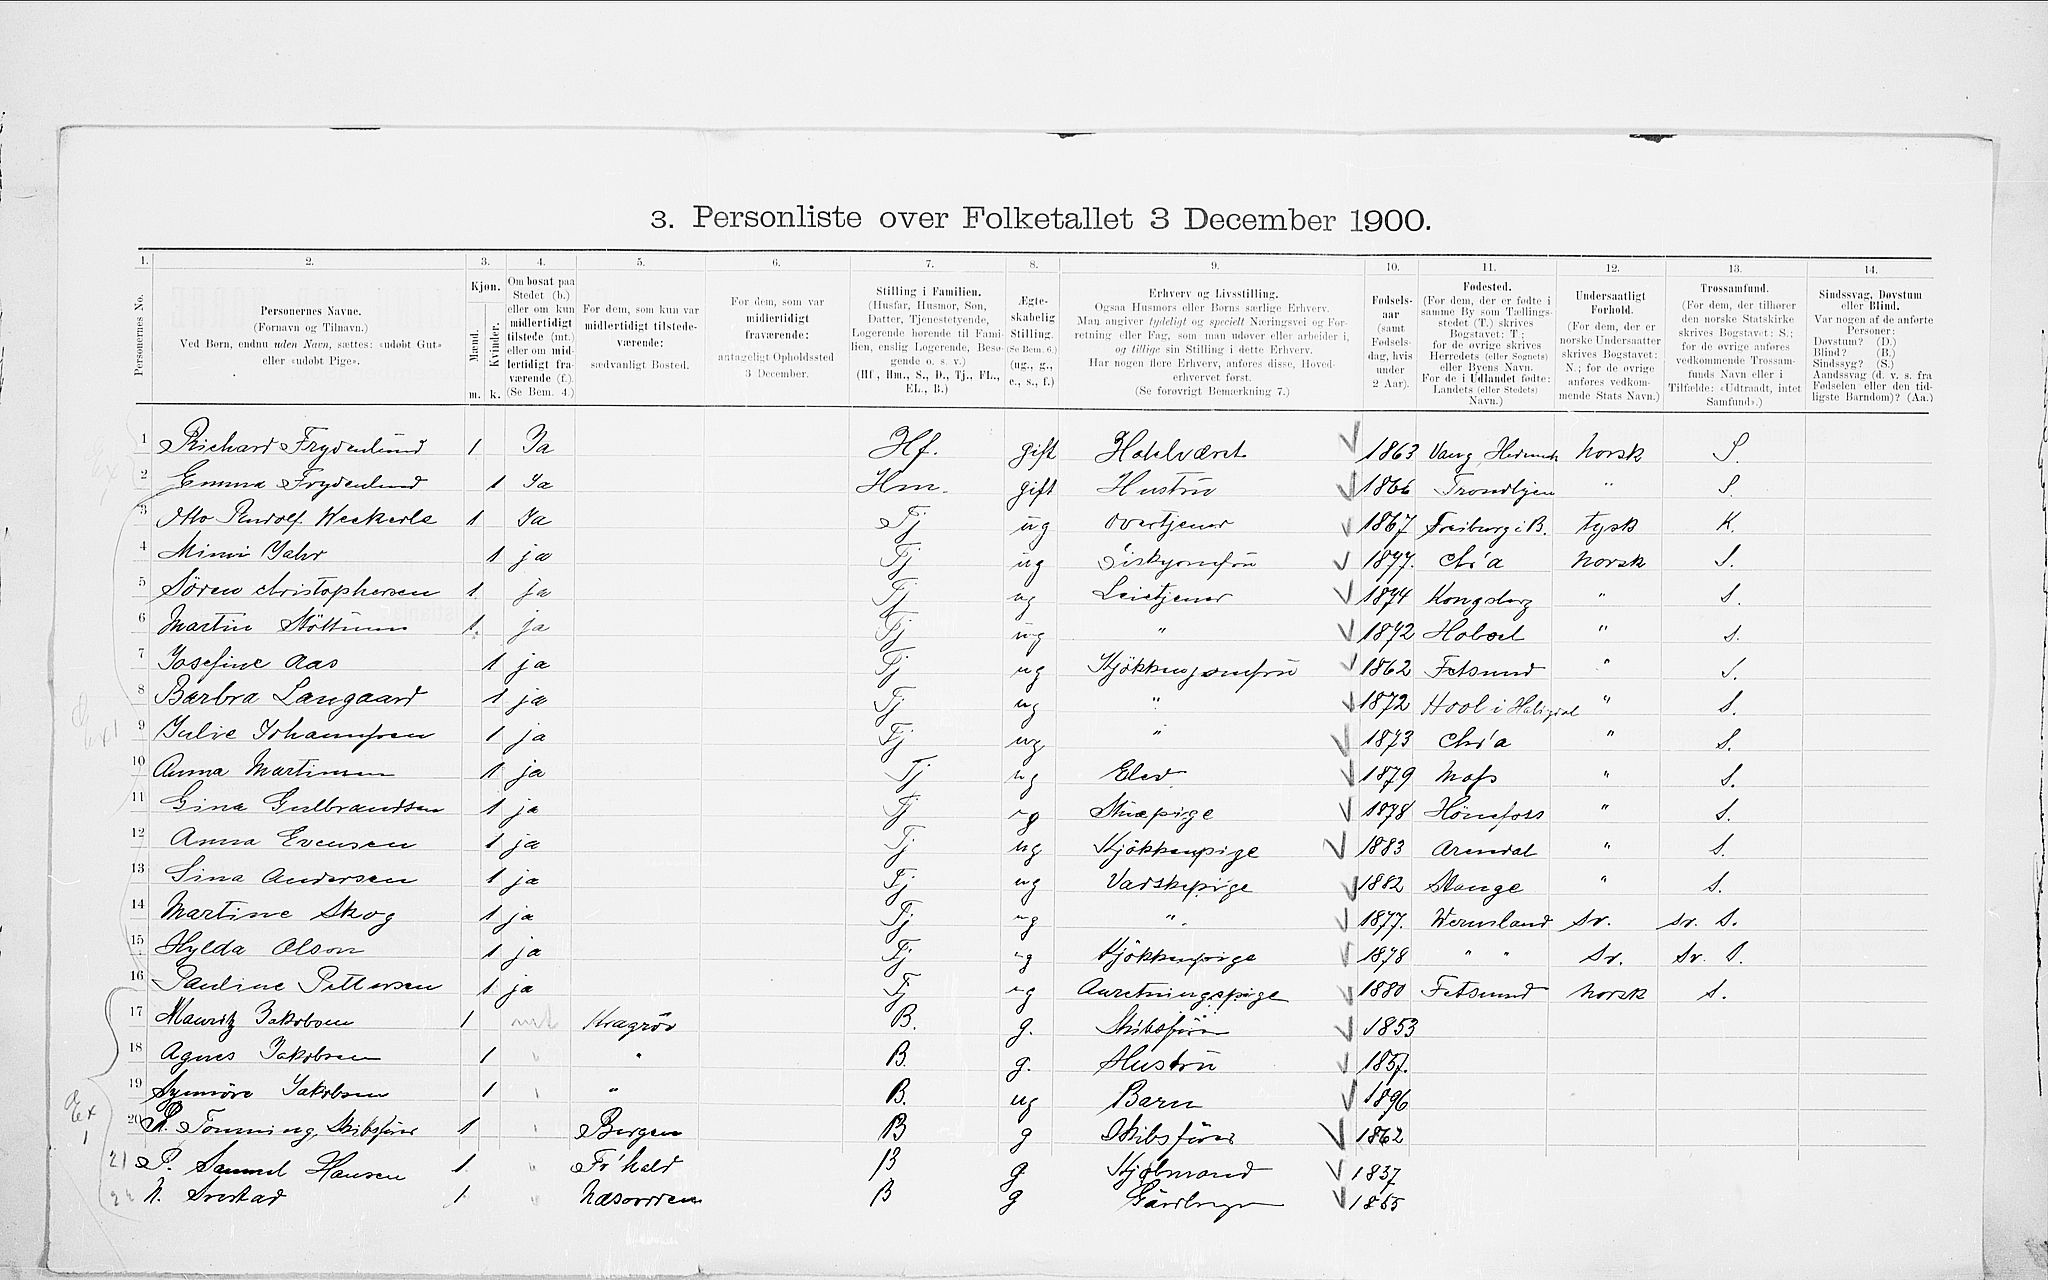 3. Personliste over Folketallet 3 December 1900.
1. 2. 3. 4. 5. 6. 7. 8. 9. 10. 11. 12. 13. 14.
Personernes No.
Personernes Navne.
(Fornavn og Tilnavn.)
Ved Børn, endnu uden Navn, sættes: «udøbt Gut»
eller «udøbt Pige».
Kjøn.
Mænd.
Kvinder.
m. k.
Om bosat paa
Stedet (b.)
eller om kun
midlertidigt
tilstede (mt.)
eller om mid-
lertidigt fra-
værende (f.).
(Se Bem. 4.)
For dem, som kun var
midlertidigt tilstede-
værende:
sædvanligt Bosted.
For dem, som var
midlertidigt
fraværende:
antageligt Opholdssted
3 December.
Stilling i Familien.
(Husfar, Husmor, Søn,
Datter, Tjenestetyende,
Logerende hørende til Fami-
lien, enslig Logerende, Besø-
gende o. s. v.)
(Hf., Hm., S., D., Tj., FL.,
EL., B.)
Ægte-
skabelig
Stilling.
(Se Bem. 6.)
(ug., g.,
e., s., f.)
Erhverv og Livsstilling.
Ogsaa Husmors eller Børns særlige Erhverv.
Man angiver tydeligt og specielt Næringsvei og For-
retning eller Fag, som man udøver eller arbeider i,
og tillige sin Stilling i dette Erhverv.
Har nogen flere Erhverv, anføres disse, Hoved-
erhvervet først.
(Se forøvrigt Bemærkning 7.)
Fødsels-
aar
(samt
Fødsels-
dag, hvis
under
2 Aar).
Fødested.
(For dem, der er fødte i
samme By som Tællings-
stedet (T.) skrives
Bogstavet: T;
for de øvrige skrives
Herredets (eller Sognets)
eller Byens Navn.
For de i Udlandet fødte:
Landets (eller Stedets)
Navn.)
Undersaatligt
Forhold.
(For dem, der er
norske Undersaatter
skrives Bogstavet:
N.; for de øvrige
anføres vedkom-
mende Stats Navn.)
Trossamfund.
(For dem, der tilhører
den norske Statskirke
skrives Bogstavet: S.;
for de øvrige anføres
vedkommende Trossam-
funds Navn eller i
Tilfælde: «Udtraadt, intet
Samfund».)
Sindssvag, Døvstum
eller Blind.
Var nogen af de anførte
Personer:
Døvstum? (D.)
Blind? (B.)
Sindssyg? (S.)
Aandssvag (d. v. s. fra
Fødselen eller den tid-
ligste Barndom)? (Aa.)
1 Richard Frydenlund 1 Ja Hf. gift Hotelvært 1863 Vang, Hedemk norsk S.
2 Emma Frydenlund 1 Ja Hm. gift Hustru 1866 Trondhjem " S.
3 Otto Rudolf Weckerle 1 Ja Tj ug overtjener 1867 Freiburg i B. tysk K.
4 Mimi Jahr 1 ja Tj ug 1877. Chr'a norsk S.
5 Søren Christophersen 1 ja Tj ug Leietjener 1874 Kongsberg " S.
6 Martin Støttum 1. ja Tj ug " 1872 Hobøl " S.
7 Josefine Aas 1 ja Tj ug Kjøkkenjomfru 1862 Fetsund " S.
8 Barbra Langaard 1 ja Tj ug " 1872 Hool i Hallgdal " S.
9 Julie Johannesen 1 ja Tj ug " 1873 Chr'a " S.
10 Anna Martinsen 1 ja Tj ug Elev 1879 Moss " S.
11 Gina Gulbrandsen 1 ja Tj ug Stuepige 1878 Hønefoss " S.
12 Anna Evensen 1 ja Tj ug Kjøkkenpige 1883 Arendal " S.
13 Sina Andersen 1 ja Tj ug Vadskepige 1882 Stange " S.
14 Martine Skog 1 ja Tj ug " 1877. Wermland Sv. Sv. S.
15 Hylda Olson 1 ja Tj ug Kjøkkenpige 1878 " " Sv. Sv. S.
16 Pauline Pettersen 1 ja Tj ug Anretningspige 1880 Fetsund norsk S.
17 Mauritz Jakobsen 1 mt Kragrøo B. g. Skibsfører 1853
18 Agnes Jakobsen 1 " B. g. Hustru 1857.
19 Synnøve Jakobsen 1 " B. ug Barn 1896
20 R. Tønning, Skibsfører 1 Bergen B g Skibsfører 1862
21 P. Samuel Hansen 1. Fr'hald B g Kjøbmand 1837
22 N. Svestad 1 Næsodden B g Gårdbruger 1855
Ex
1